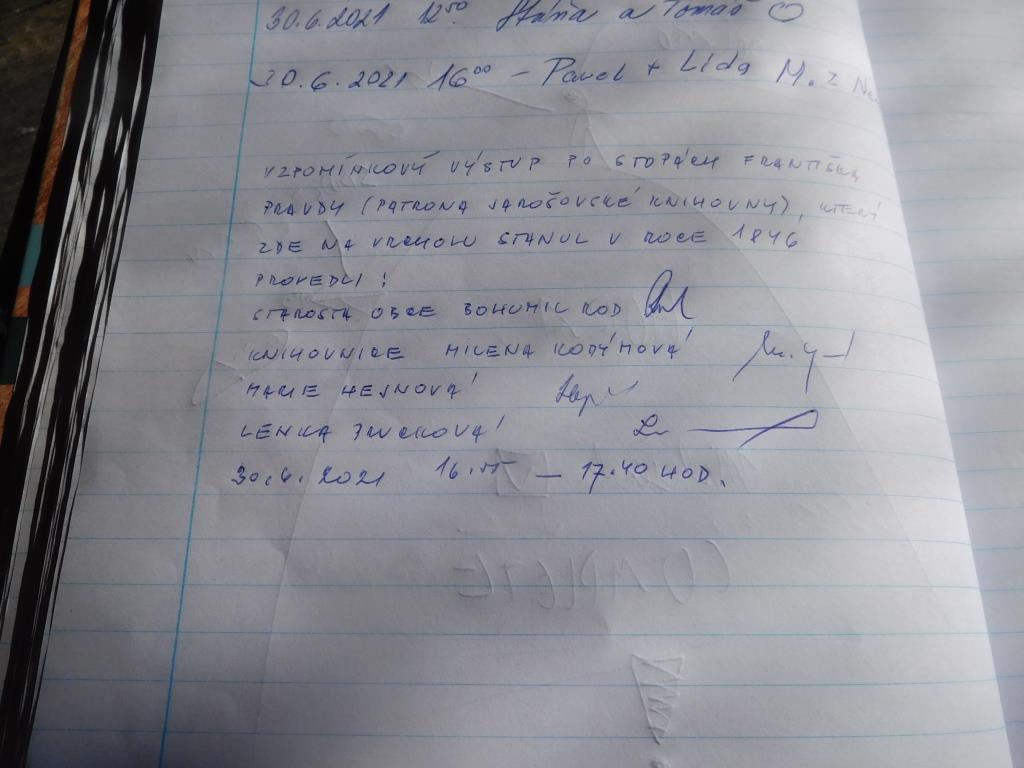 30.6.2021 12⁵⁰ Stáňa a Tomáš
30.6.2021 16⁰⁰ – Pavel + Lída M. z
VZPOMÍNKOVÝ VÝSTUP PO STOPÁCH FRANTIŠKA
PRAVDY (PATRONA JAROŠOVSKÉ KNIHOVNY), KTERÝ
ZDE NA VRCHOLU STANUL V ROCE 1846
PROVEDLI:
STAROSTA OBCE BOHUMIL ROD
KNIHOVNICE MILENA KODÝMOVÁ
MARIE HEJNOVÁ
LENKA
30.6.2021 – 17.40 HOD.